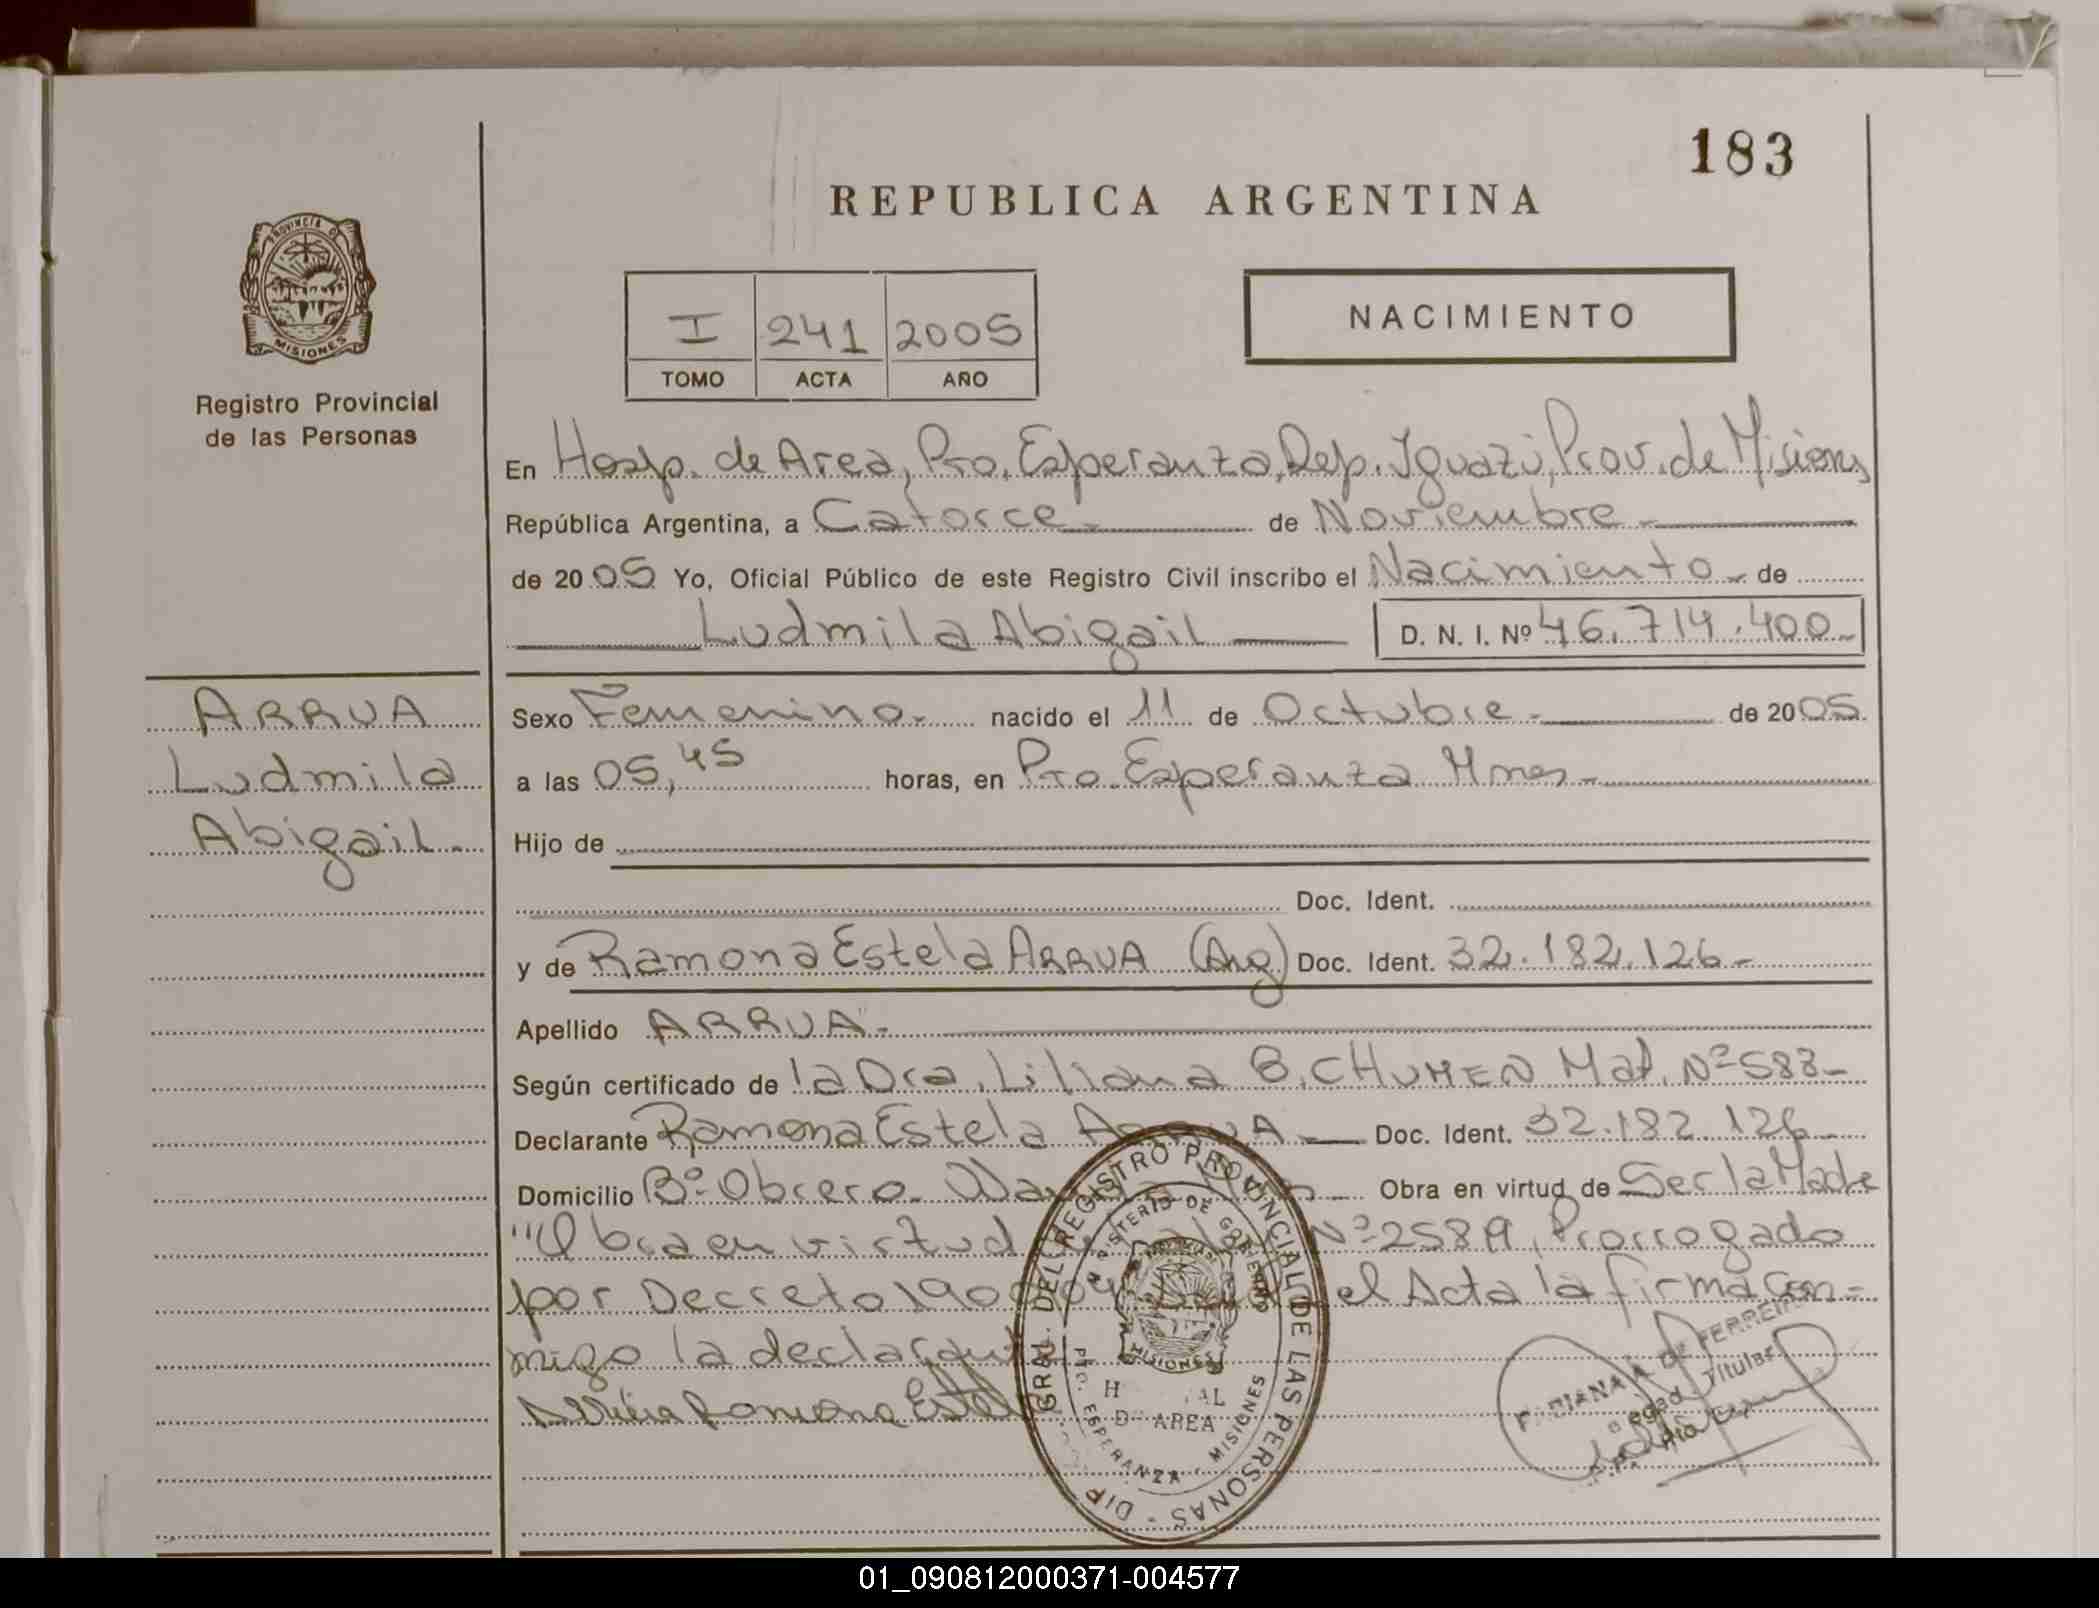 183
REPUBLICA ARGENTINA
PROVINCIA DE
MISIONES
Registro Provincial
de las Personas
I 241 2005
TOMO ACTA AÑO
NACIMIENTO
En Hosp. de Area, Pto. Esperanza, Dep. Iguazú, Prov. de Misiones
República Argentina, a Catorce de Noviembre
de 2005 Yo, Oficial Público de este Registro Civil inscribo el Nacimiento de
Ludmila Abigail D. N. I. Nº 46.714.400
ARRUA
Ludmila
Abigail.
Sexo Femenino. nacido el 11 de Octubre de 2005.
a las 05,45 horas, en Pto. Esperanza Mnes
Hijo de
Doc. Ident.
y de Ramona Estela ARRUA (Arg) Doc. Ident. 32.182.126
Apellido ARRUA
Según certificado de la Dra. Liliana B. CHUMEN Mat. Nº 583
Declarante Ramona Estela ARRUA Doc. Ident. 32.182.126
Domicilio Bº Obrero Obra en virtud de Ser la Madre
"Obra en virtud Nº 2589, Prorrogado
por Decreto el Acta la firma Con=
migo la declarante
Ramona Estela
DIR. GRAL. DEL REGISTRO PROVINCIAL DE LAS PERSONAS
MINISTERIO DE GOBIERNO
MISIONES
HOSPITAL
DE AREA
PTO. ESPERANZA - MISIONES
Titular
01_090812000371-004577